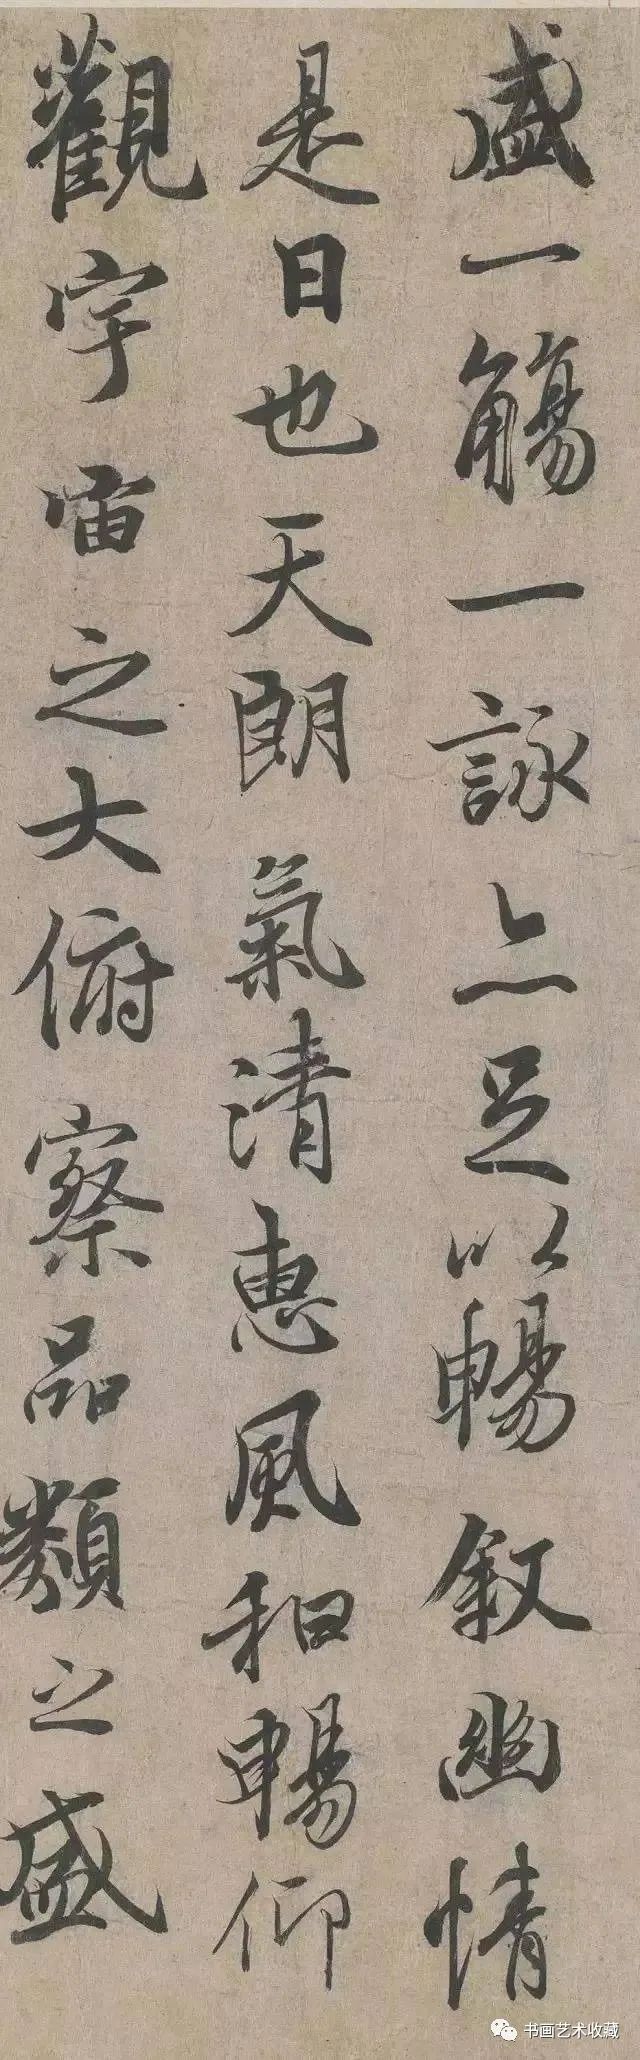 盛一觴一詠亦足以暢叙幽情
是日也天朗氣清惠風和暢仰
觀宇宙之大俯察品類之盛
书画艺术收藏